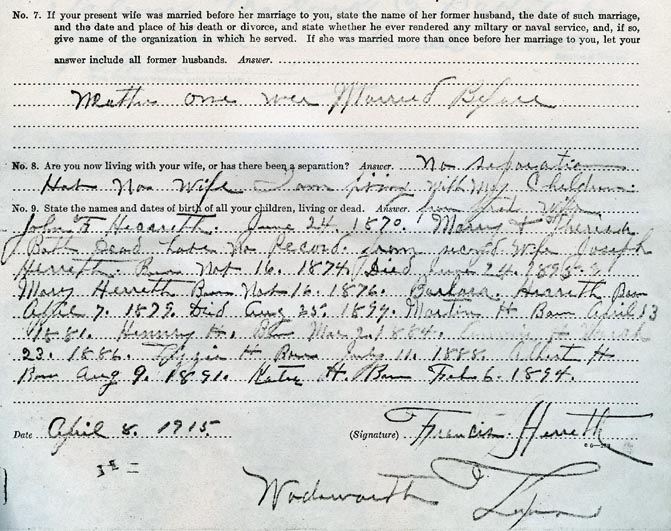 No. 7. If your present wife was married before her marriage to you, state the name of her former husband, the date of such marriage,
and the date and place of his death or divorce, and state whether he ever rendered any military or naval service, and, if so,
give name of the organization in which he served. If she was married more than once before her marriage to you, let your
answer include all former husbands. Answer.
one was Married Before
No. 8. Are you now living with your wife, or has there been a separation? Answer. No separation
Wife I am living with My Children.
No. 9. State the names and dates of birth of all your children, living or dead. Answer. from first Wife
John F Herreth. June 24. 1870. Mary &
Both Dead have No Record. from second Wife Joseph
Herreth. Born Nov 16. 1874, Died June 24. 1893.
Mary Herreth Born Nov 16. 1876. Barbara. Herreth Born
April 7. 1879. Died Aug 25. 1899. Martin H Born April 13
1881. Henry H. Mar 2. 1884. H March
23. 1886. Lizzie H Born July 11. 1888. Albert H
Born Aug 9. 1891. Katie H. Born Feb 6. 1894.
Date April 8. 1915
(Signature) Francis Herreth
Wadsworth